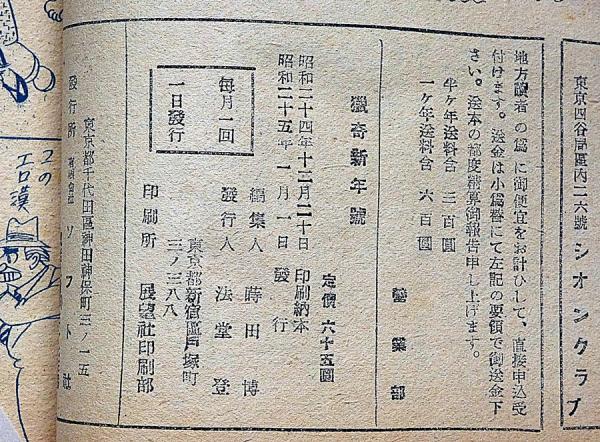 東京四谷局區內二六號 シオンクラブ
地方讀者の爲に御便宜をお計ひして、直接申込受
付けます。送金は小爲替にて左記の要領で御送金下
さい。送本の都度精算御報告申し上げます。
半ケ年送料含 三百圓
一ケ年送料含 六百圓
營業部
獵奇新年號
定價 六十五圓
昭和二十四年十二月二十日 印刷納本
昭和二十五年一月一日 發行
每月一回
一日發行
編集人 蒔田博
發行人 法堂登
東京都新宿區戶塚町
三ノ三八八
印刷所 展望社印刷部
東京都千代田區神田神保町三ノ一五
發行所 ソフト社
エロ漢